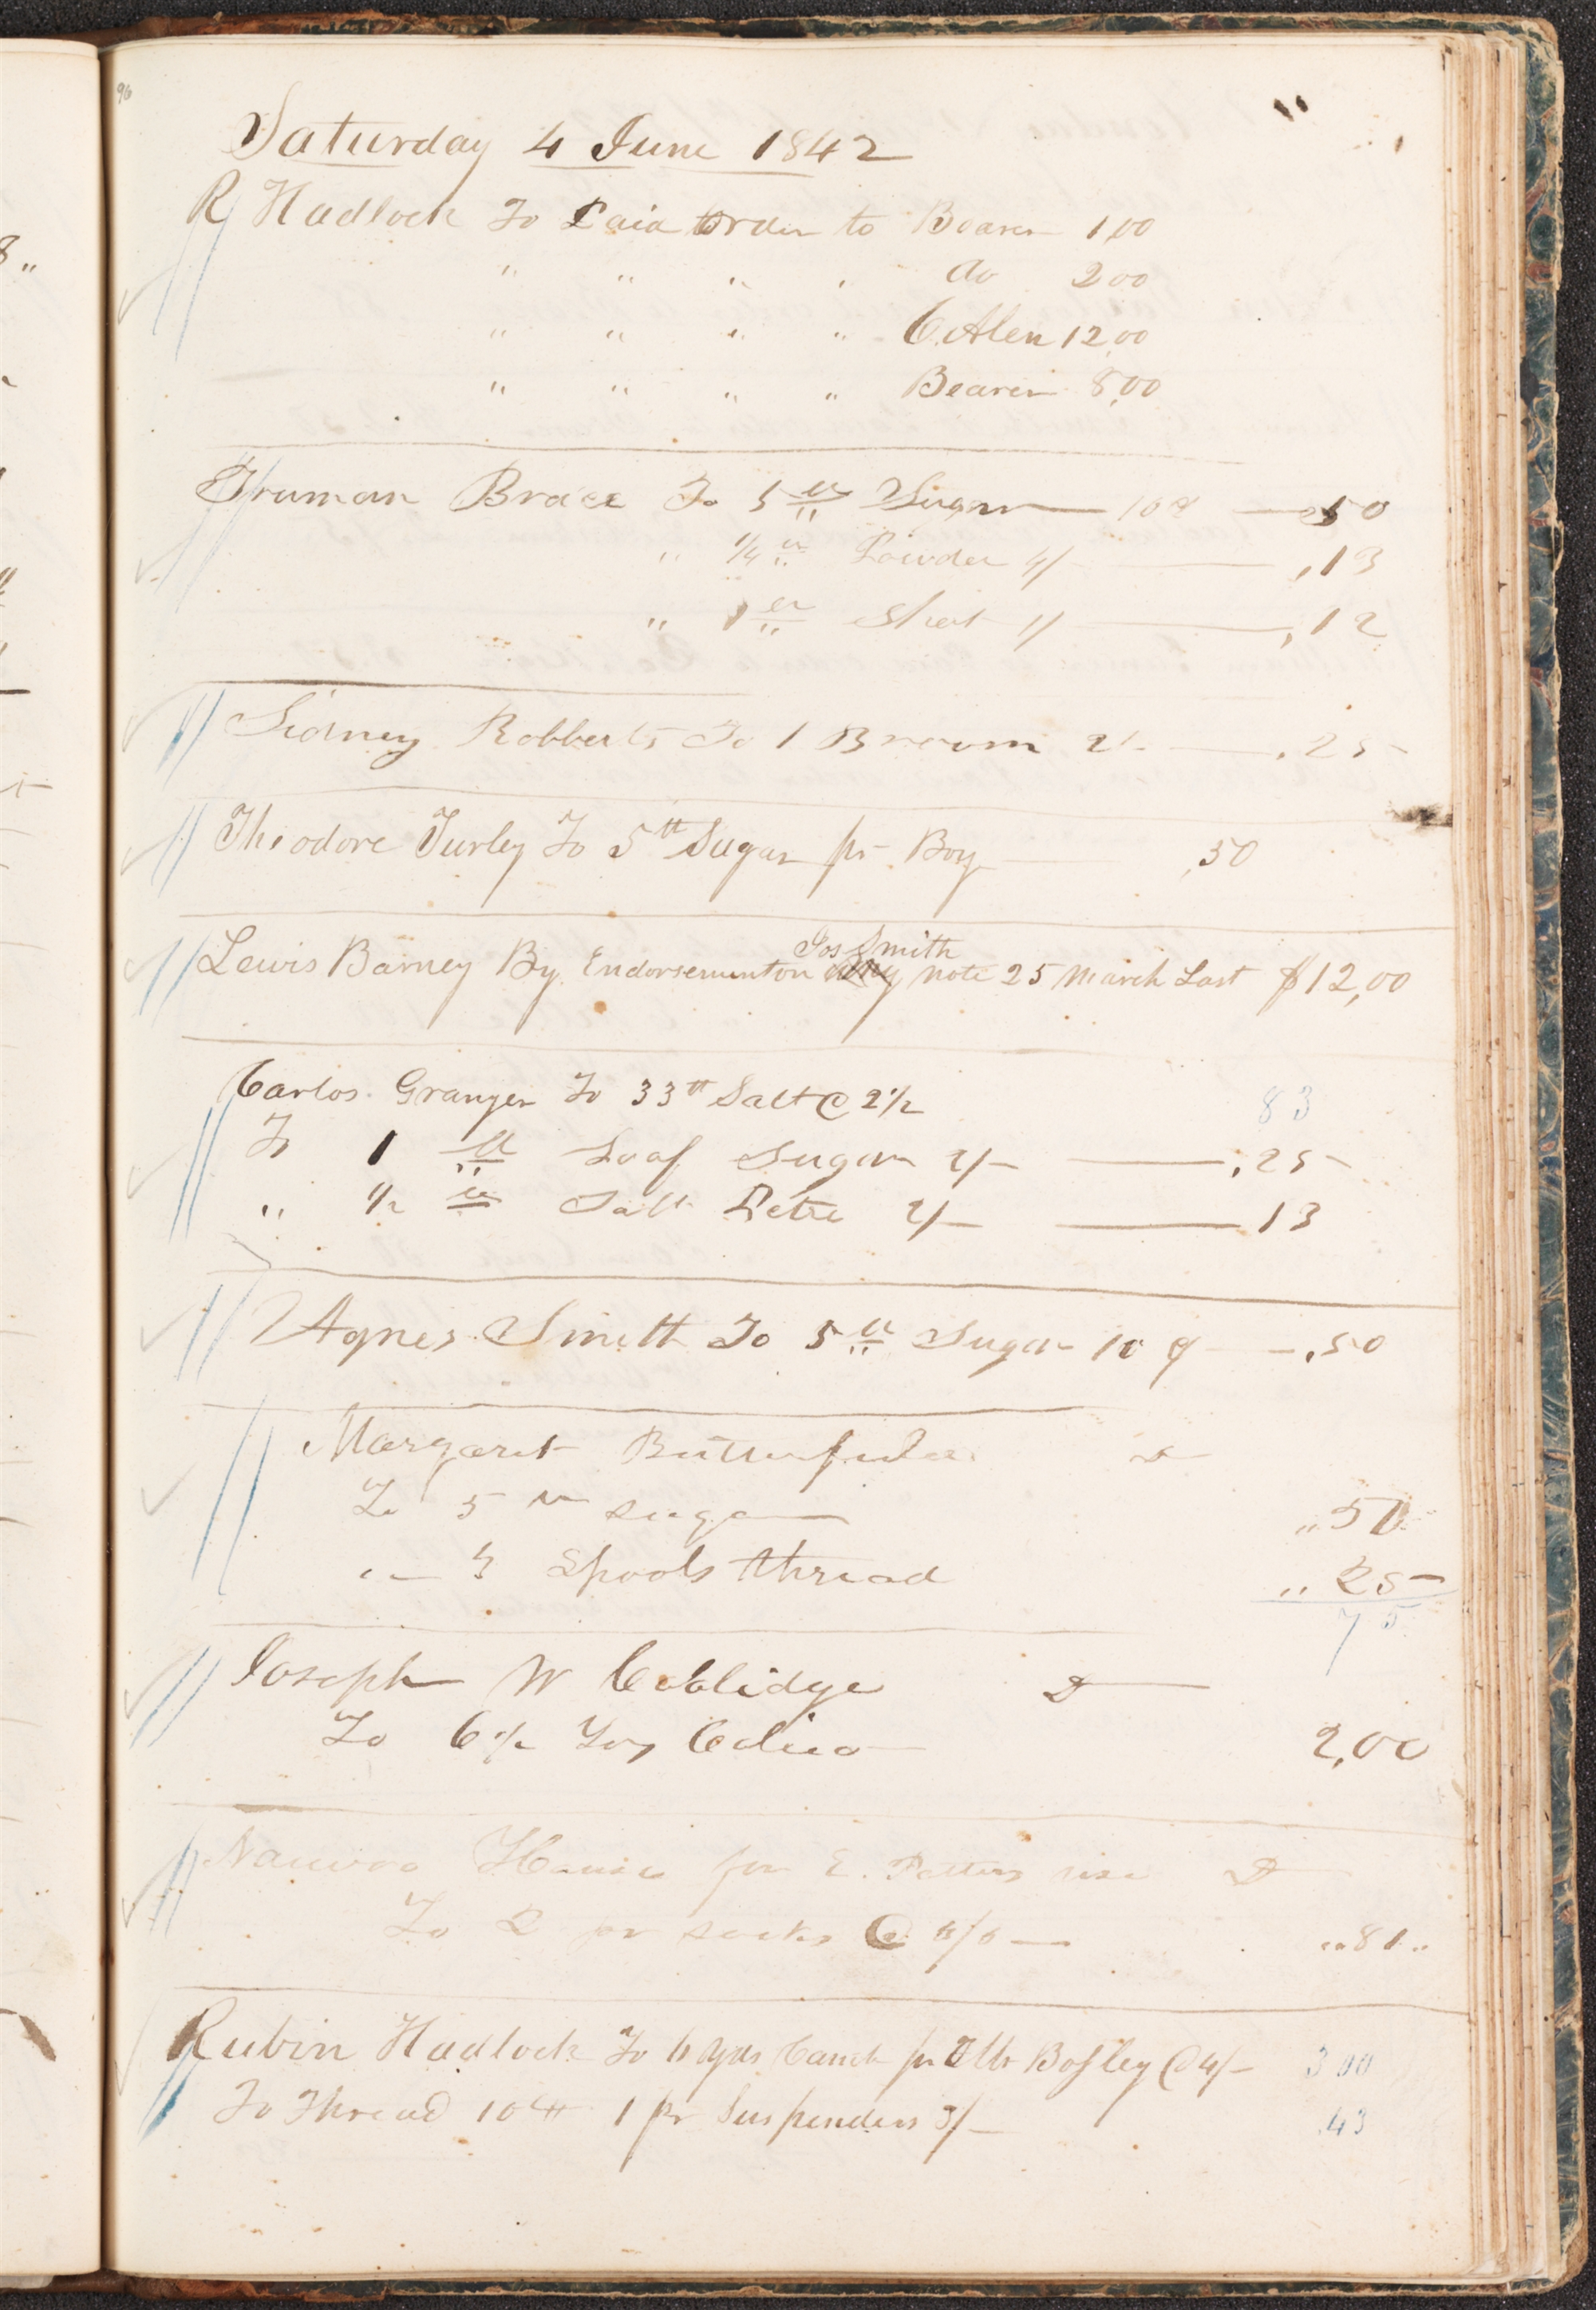 96
Saturday 4 June 1842
R Hadlock To Paid Order to Bearer 1,00
" " " " do 2 00
" " " " C. Alen 12,00
" " " " Bearer 8,00
Truman Brace To 5 ℔ Sugar 10¢ 50
" 1/4 ℔ Powder 4/ ,13
" 1 ℔ Shot 1/ ,12
Sidney Robberts To 1 Broom 2/- .25
Theodore Turley To 5 ℔ Sugar pr Boy ,50
Jos Smith
Lewis Barney By Endorsement on my note 25 March Last $12,00
Carlos Granger To 33 ℔ Salt @ 2 1/2 83
To 1 ℔ Loaf Sugar 2/- .25
" 1/2 ℔ Salt Petre 2/- 13
Agnes Smith To 5 ℔ Sugar 10 ¢ .50
Margaret Butterfield D
To 5 ℔ Sugar " 50
" 3 Spools thread " 25
75
Joseph W Coolidge D
To 6 1/2 Yds Calico 2,00
Nauvoo House for E. Potters use D
To 2 pr socks @ " 81 "
Rubin Hadlock To 6 Yds pr Mr Bosley @ 4/- 3 00
To Thread 1 pr Suspenders 3/- .43